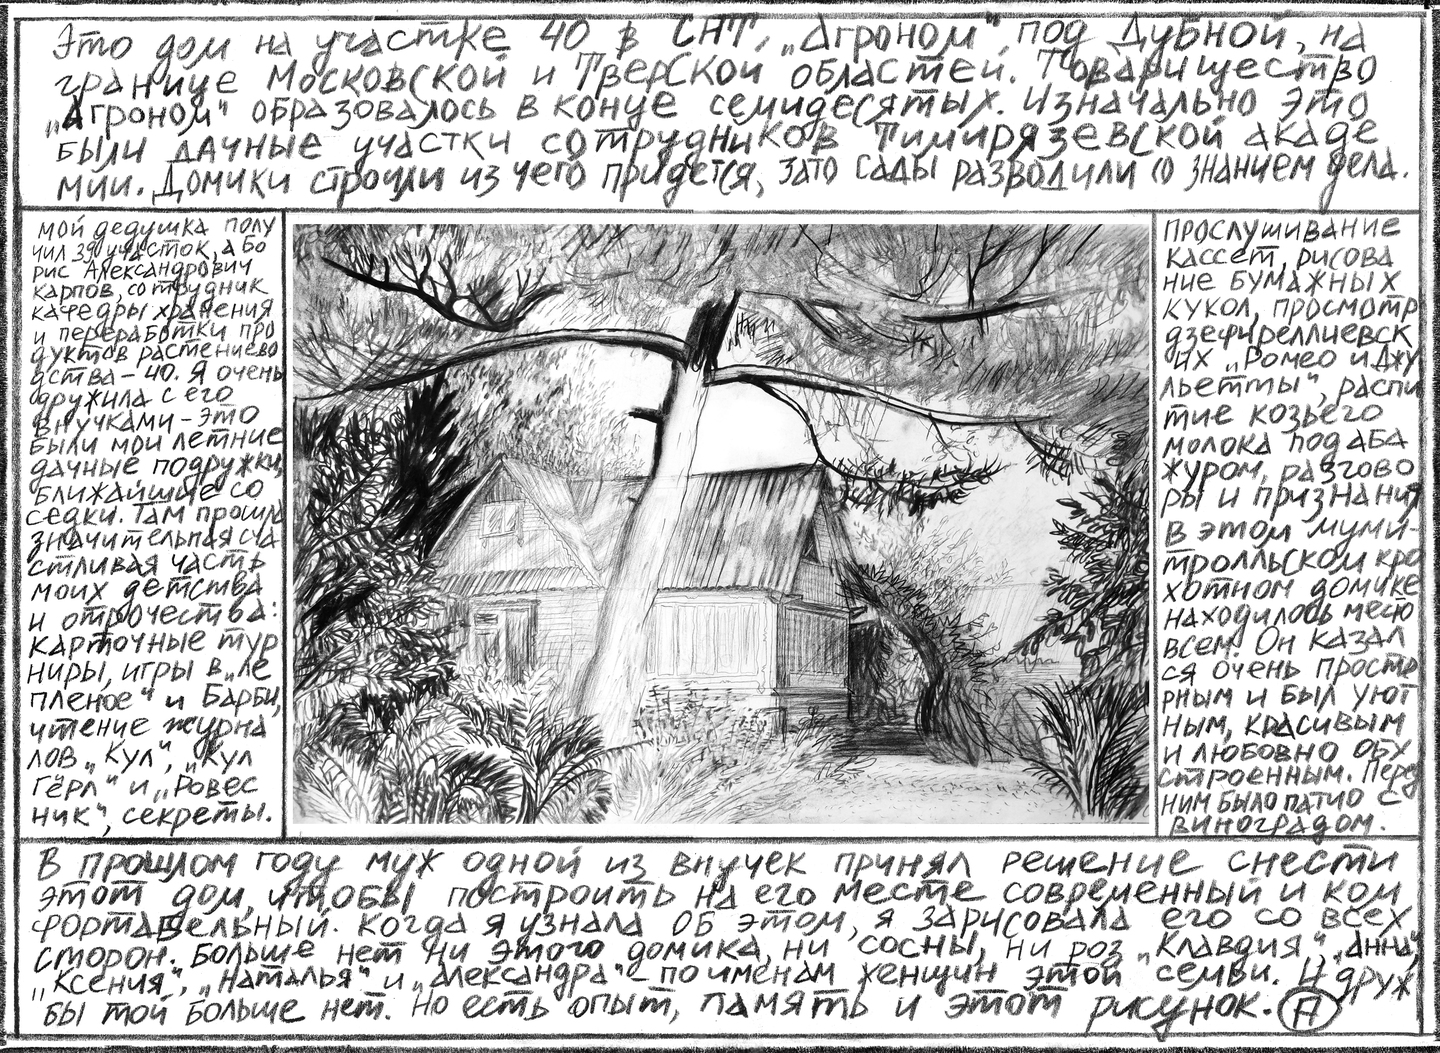 Это дом на участке 40 в СНТ „Агроном“ под Дубной, на
границе Московской и Тверской областей. Товарищество
„Агроном“ образовалось в конце семидесятых. Изначально это
были дачные участки сотрудников Тимирязевской акаде
мии. Домики строили из чего придётся, зато сады разводили со знанием дела.
мой дедушка полу
чил 39 участок, а Бо
рис Александрович
карпов, сотрудник
кафедры хранения
и переработки про
дуктов растениево
дства – 40. Я очень
дружила с его
внучками – это
были мои летние
дачные подружки,
ближайшие со
седки. Там прошла
значительная сча
стливая часть
моих детства
и отрочества:
карточные тур
ниры, игры в „ле
пленое“ и Барби,
чтение журна
лов „Кул“, „Кул
Гёрл“ и „Ровес
ник“, секреты.
прослушивание
кассет, рисова
ние бумажных
кукол, просмотр
дзефиреллиевск
их „Ромео и Джу
льетты“, распи
тие козьего
молока под аба
журом, разгово
ры и признания
в этом муми-
тролльском кро
хотном домике
находилось место
всем. Он казал
ся очень просто
рным и был уют
ным, красивым
и любовно обу
строенным. Перед
ним было патио с
виноградом.
В прошлом году муж одной из внучек принял решение снести
этот дом, чтобы построить на его месте современный и ком
фортабельный. Когда я узнала об этом, я зарисовала его со всех
сторон. Больше нет ни этого домика, ни сосны, ни роз „Клавдия“, „Анна“,
„Ксения“, „Наталья“ и „Александра“ – по именам женщин этой семьи. И друж
бы той больше нет. Но есть опыт, память и этот рисунок. А